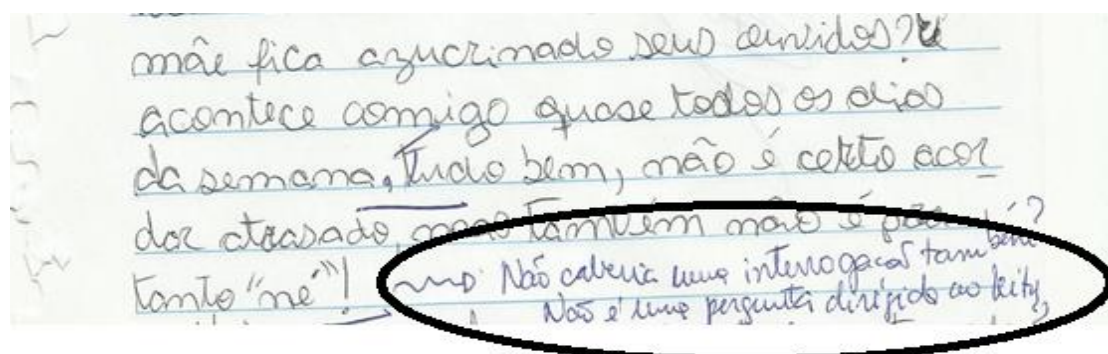 mãe fica azucrinado seus ouvidos?
acontece comigo quase todos os dias
da semana, Tudo bem, não é certo acor
dar atrasado, mas também não é para
tanto "né"!
Não caberia uma interrogação também?
Não é uma pergunta dirigida ao leitor